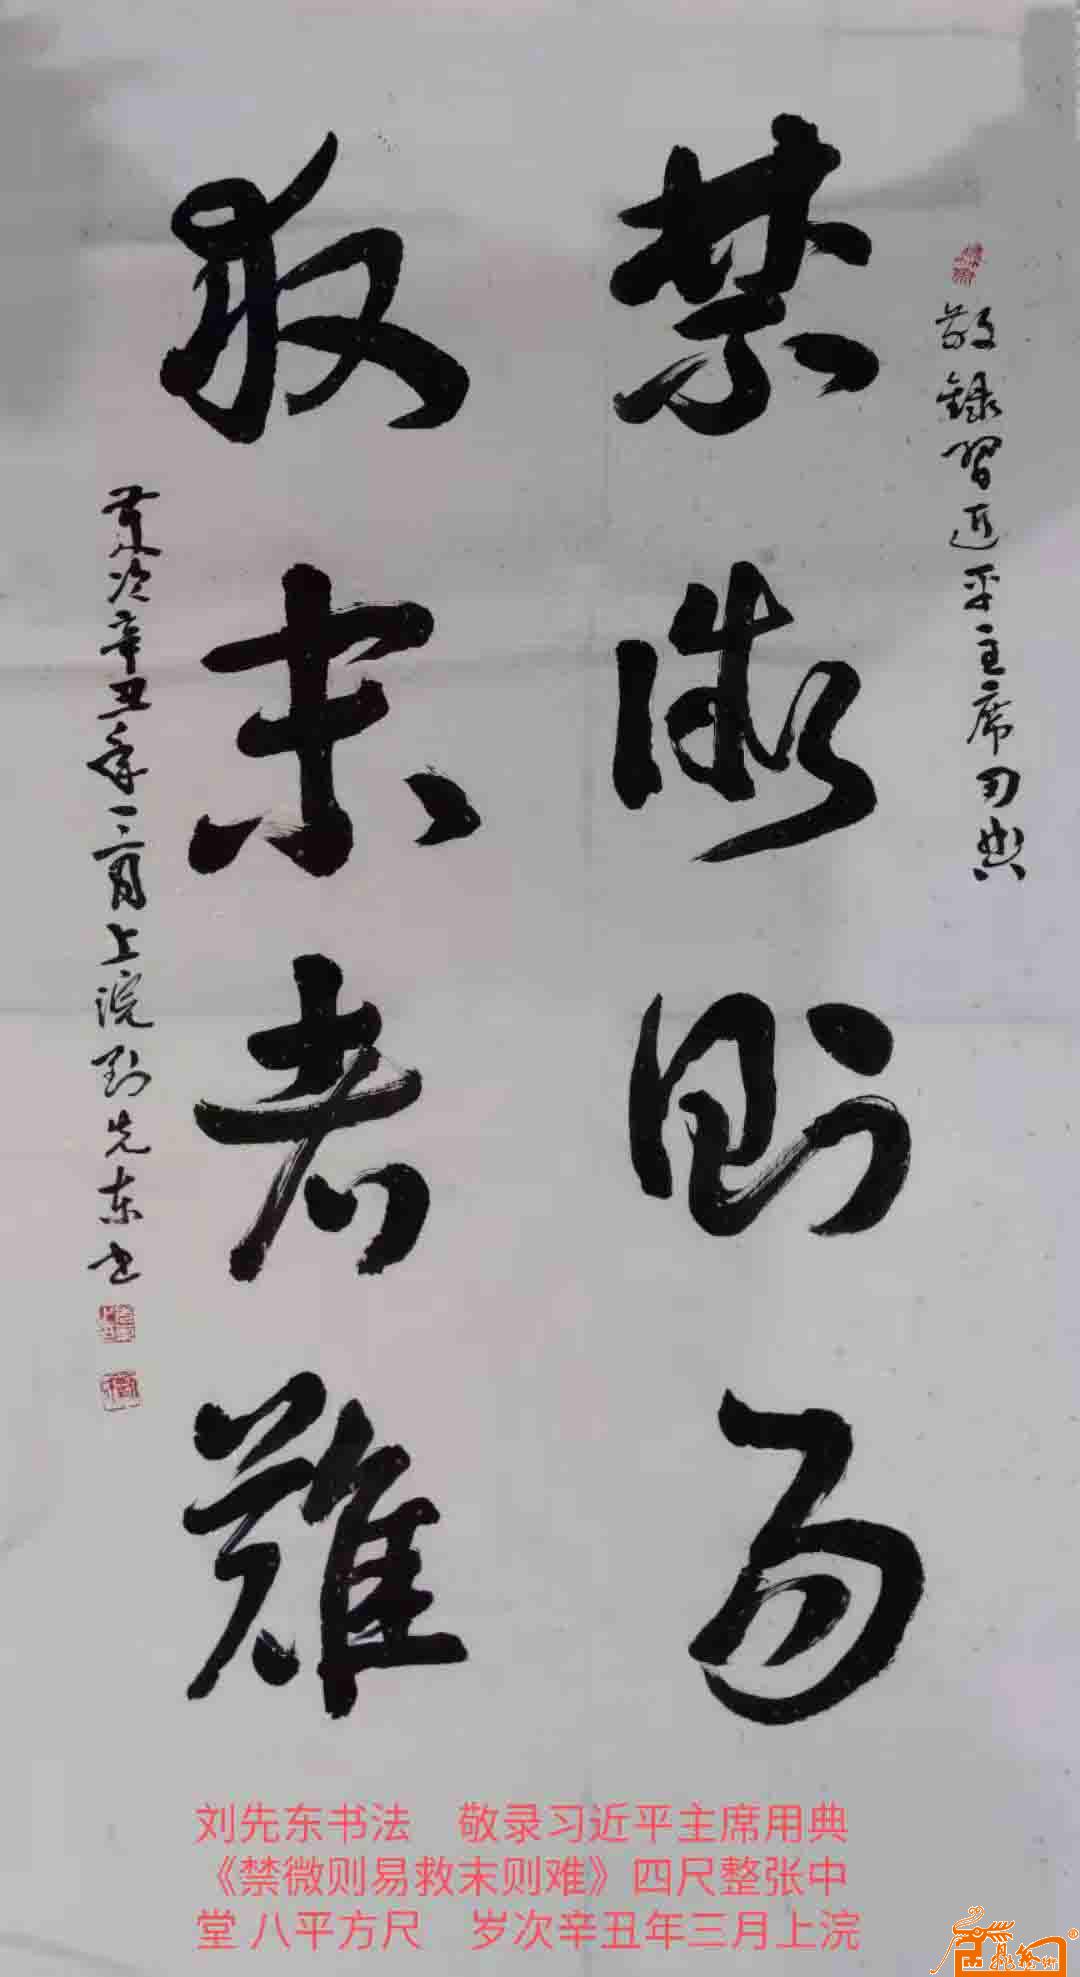 敬録習近平主席用典
禁微則易
救末者難
歲次辛丑年三月上浣劉先东书
刘先东书法 敬录习近平主席用典
《禁微则易救末则难》四尺整张中
堂 八平方尺 岁次辛丑年三月上浣